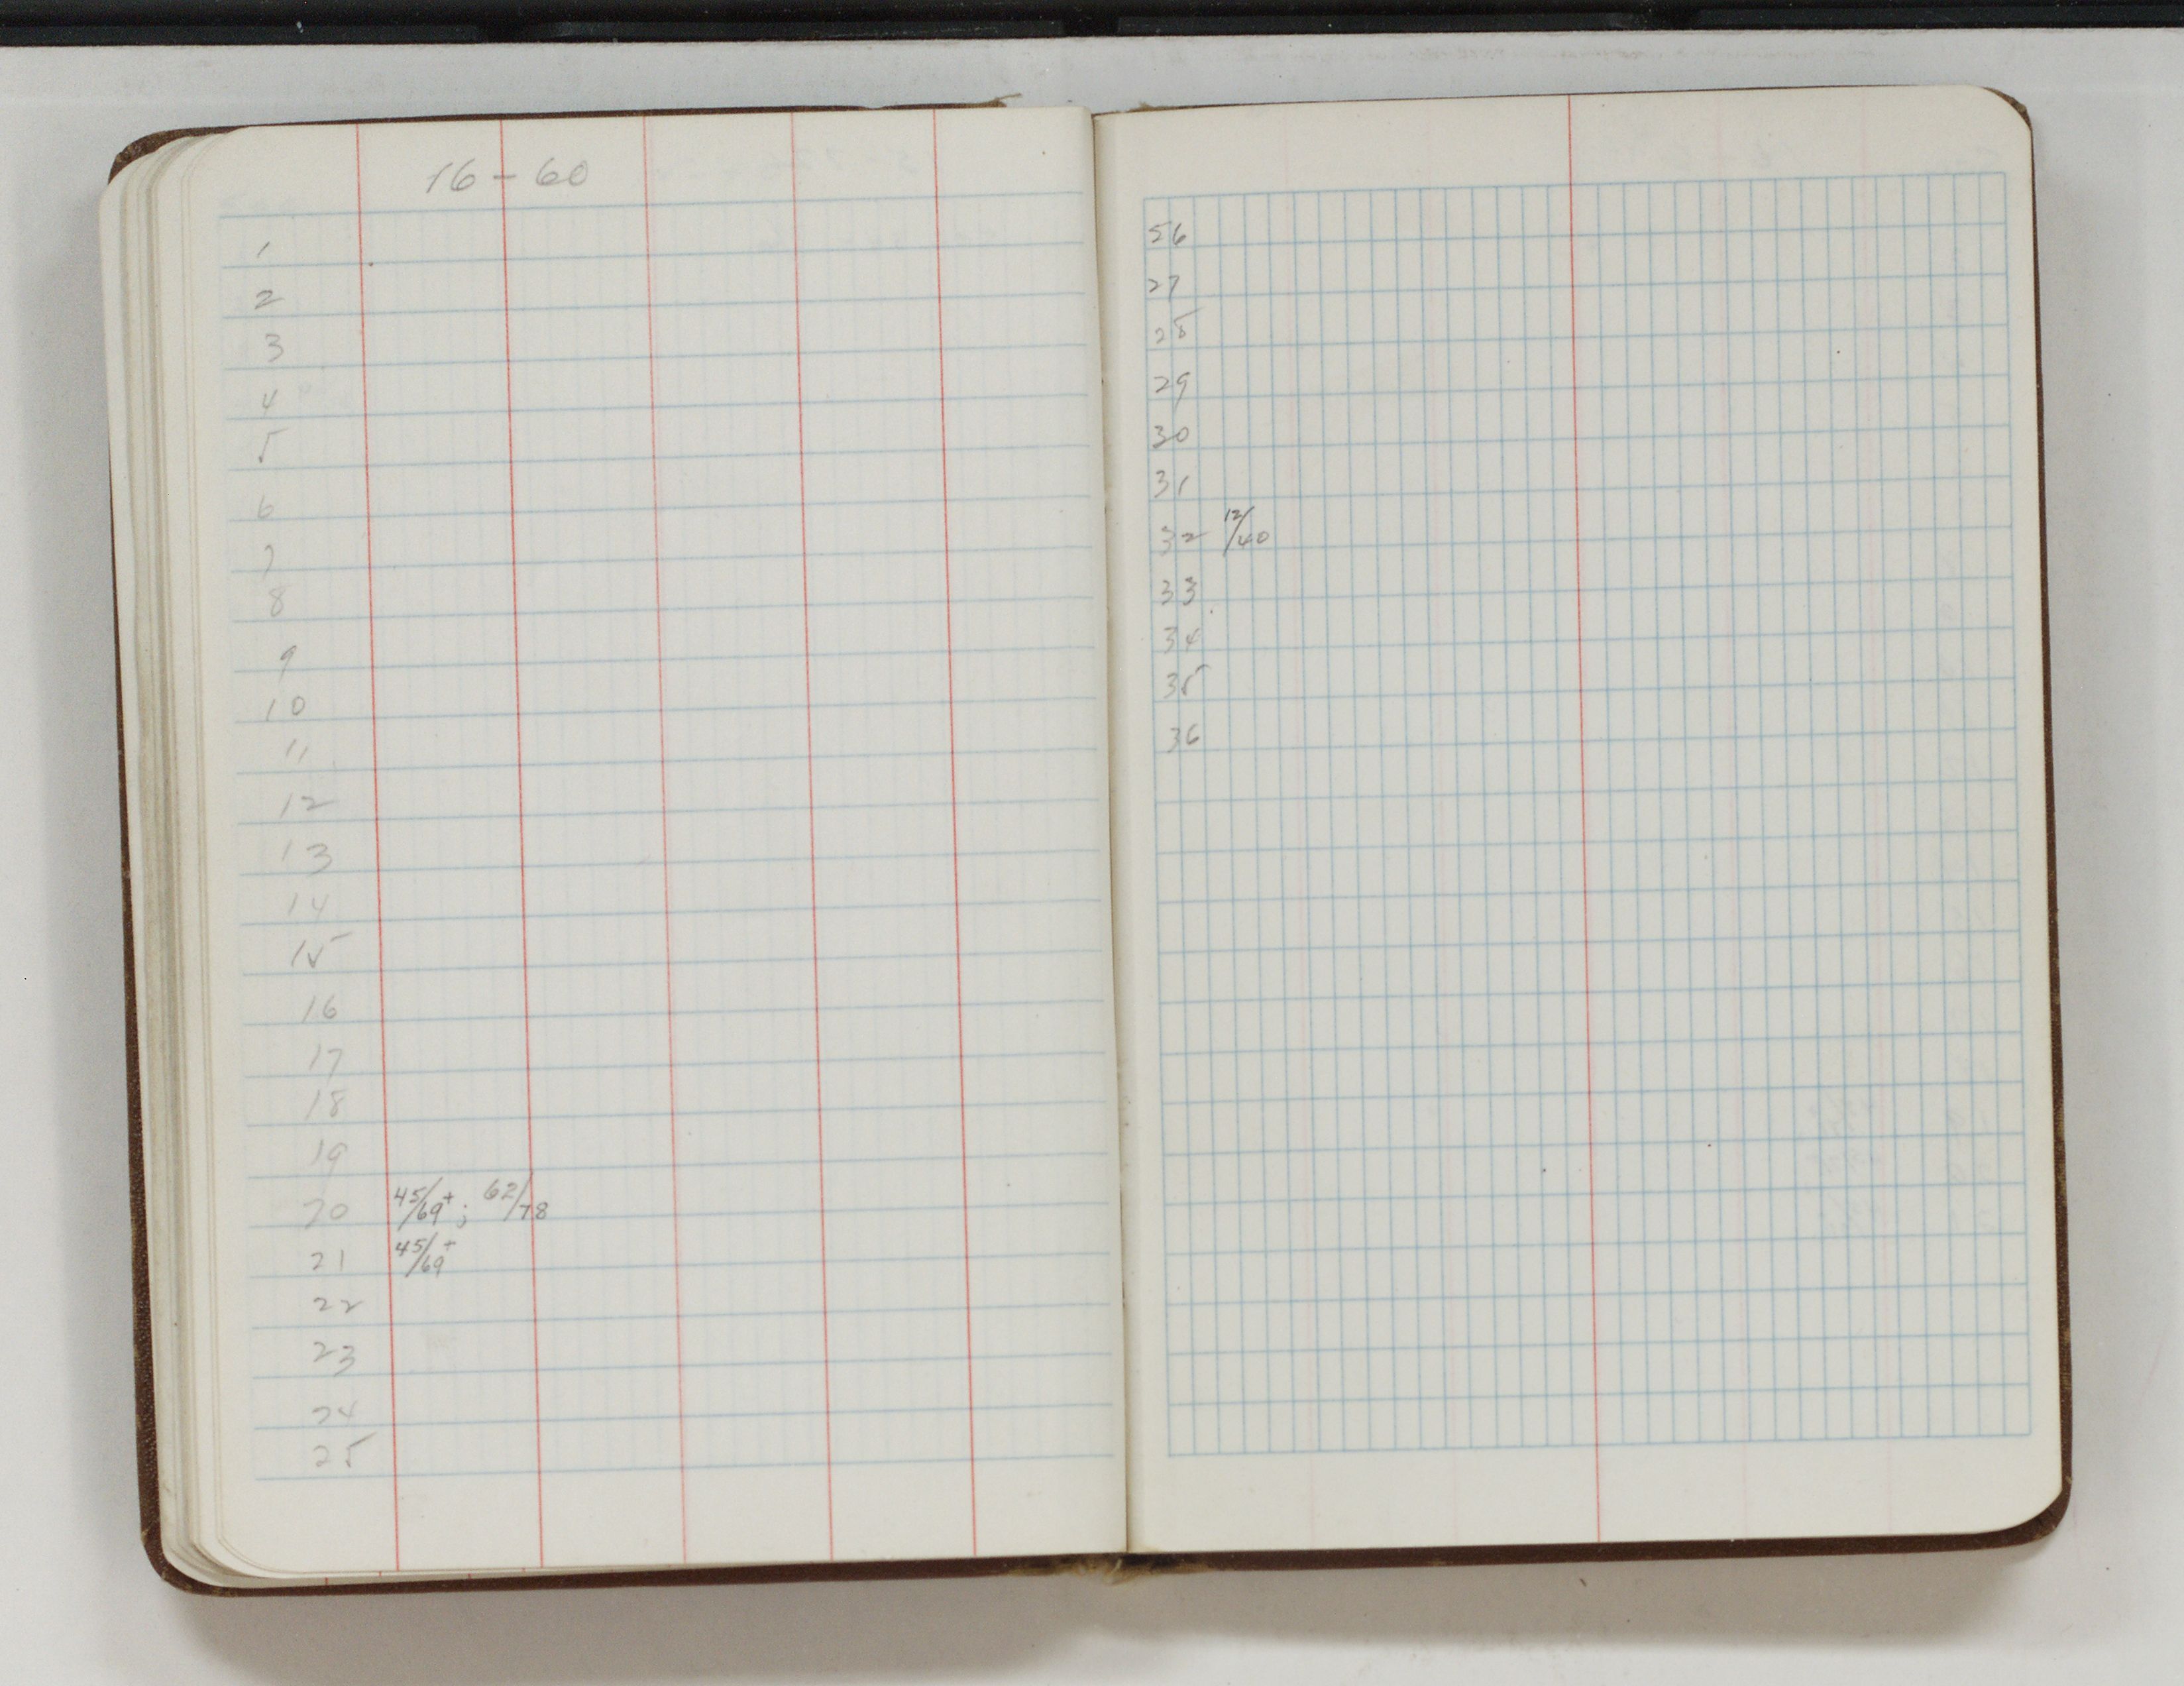 16 - 60
1
2
3
4
5
6
7
8
9
10
11
12
13
14
15
16
17
18
19
20 45/69+ ; 62/78
21 45/69+
22
23
24
25
56
27
28
29
30
31
32 12/40
33
34
35
36